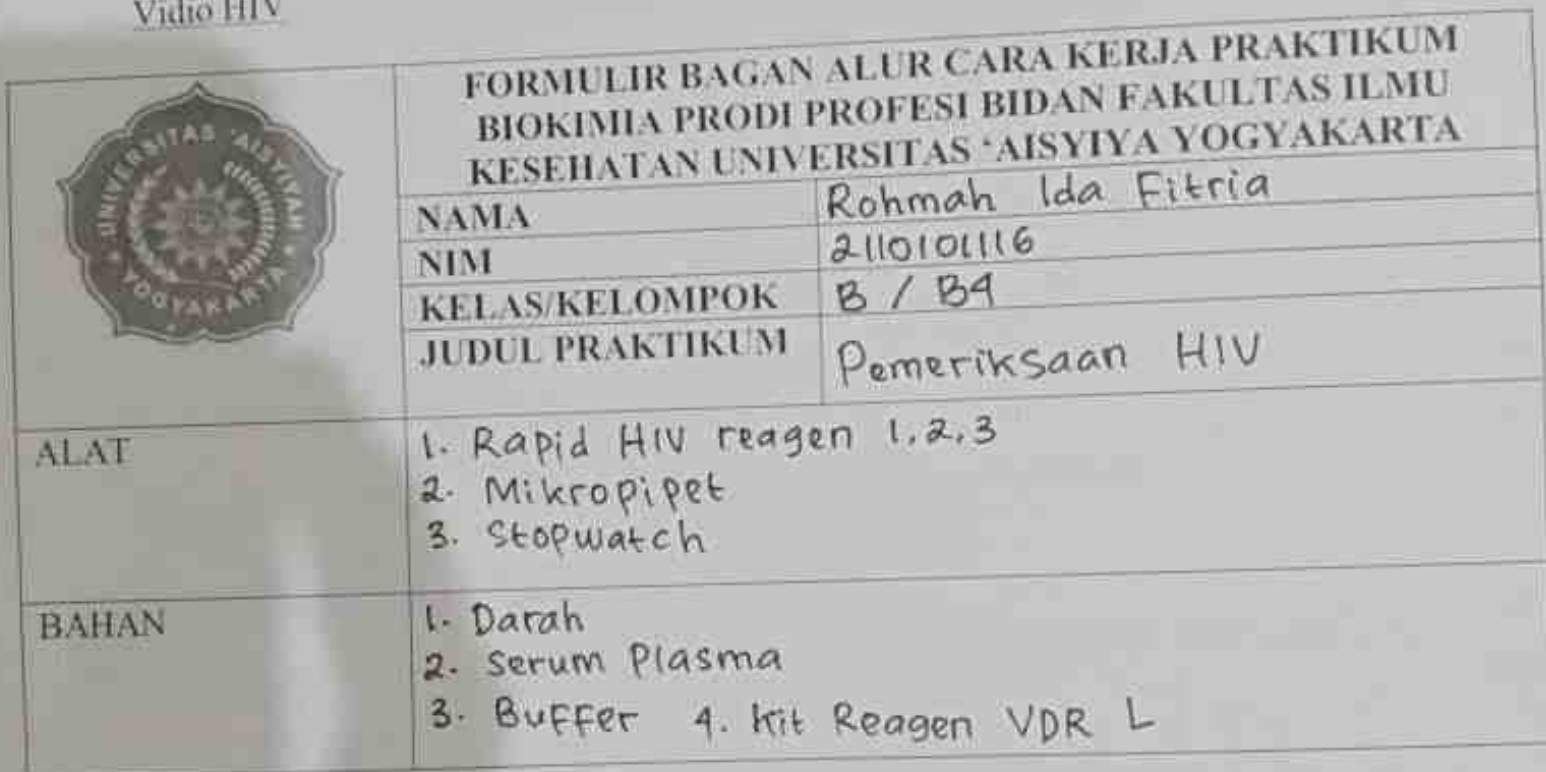 Vidio HIV
FORMULIR BAGAN ALUR CARA KERJA PRAKTIKUM
BIOKIMIA PRODI PROFESI BIDAN FAKULTAS ILMU
KESEHATAN UNIVERSITAS 'AISYIYA YOGYAKARTA
UNIVERSITAS 'AISYIYAH
YOGYAKARTA
NAMA Rohmah Ida Fitria
NIM 2110101116
KELAS/KELOMPOK B / B4
JUDUL PRAKTIKUM Pemeriksaan HIV
ALAT 1. Rapid HIV reagen 1,2,3
2. Mikropipet
3. Stopwatch
BAHAN 1. Darah
2. Serum Plasma
3. Buffer 4. Kit Reagen VDR L